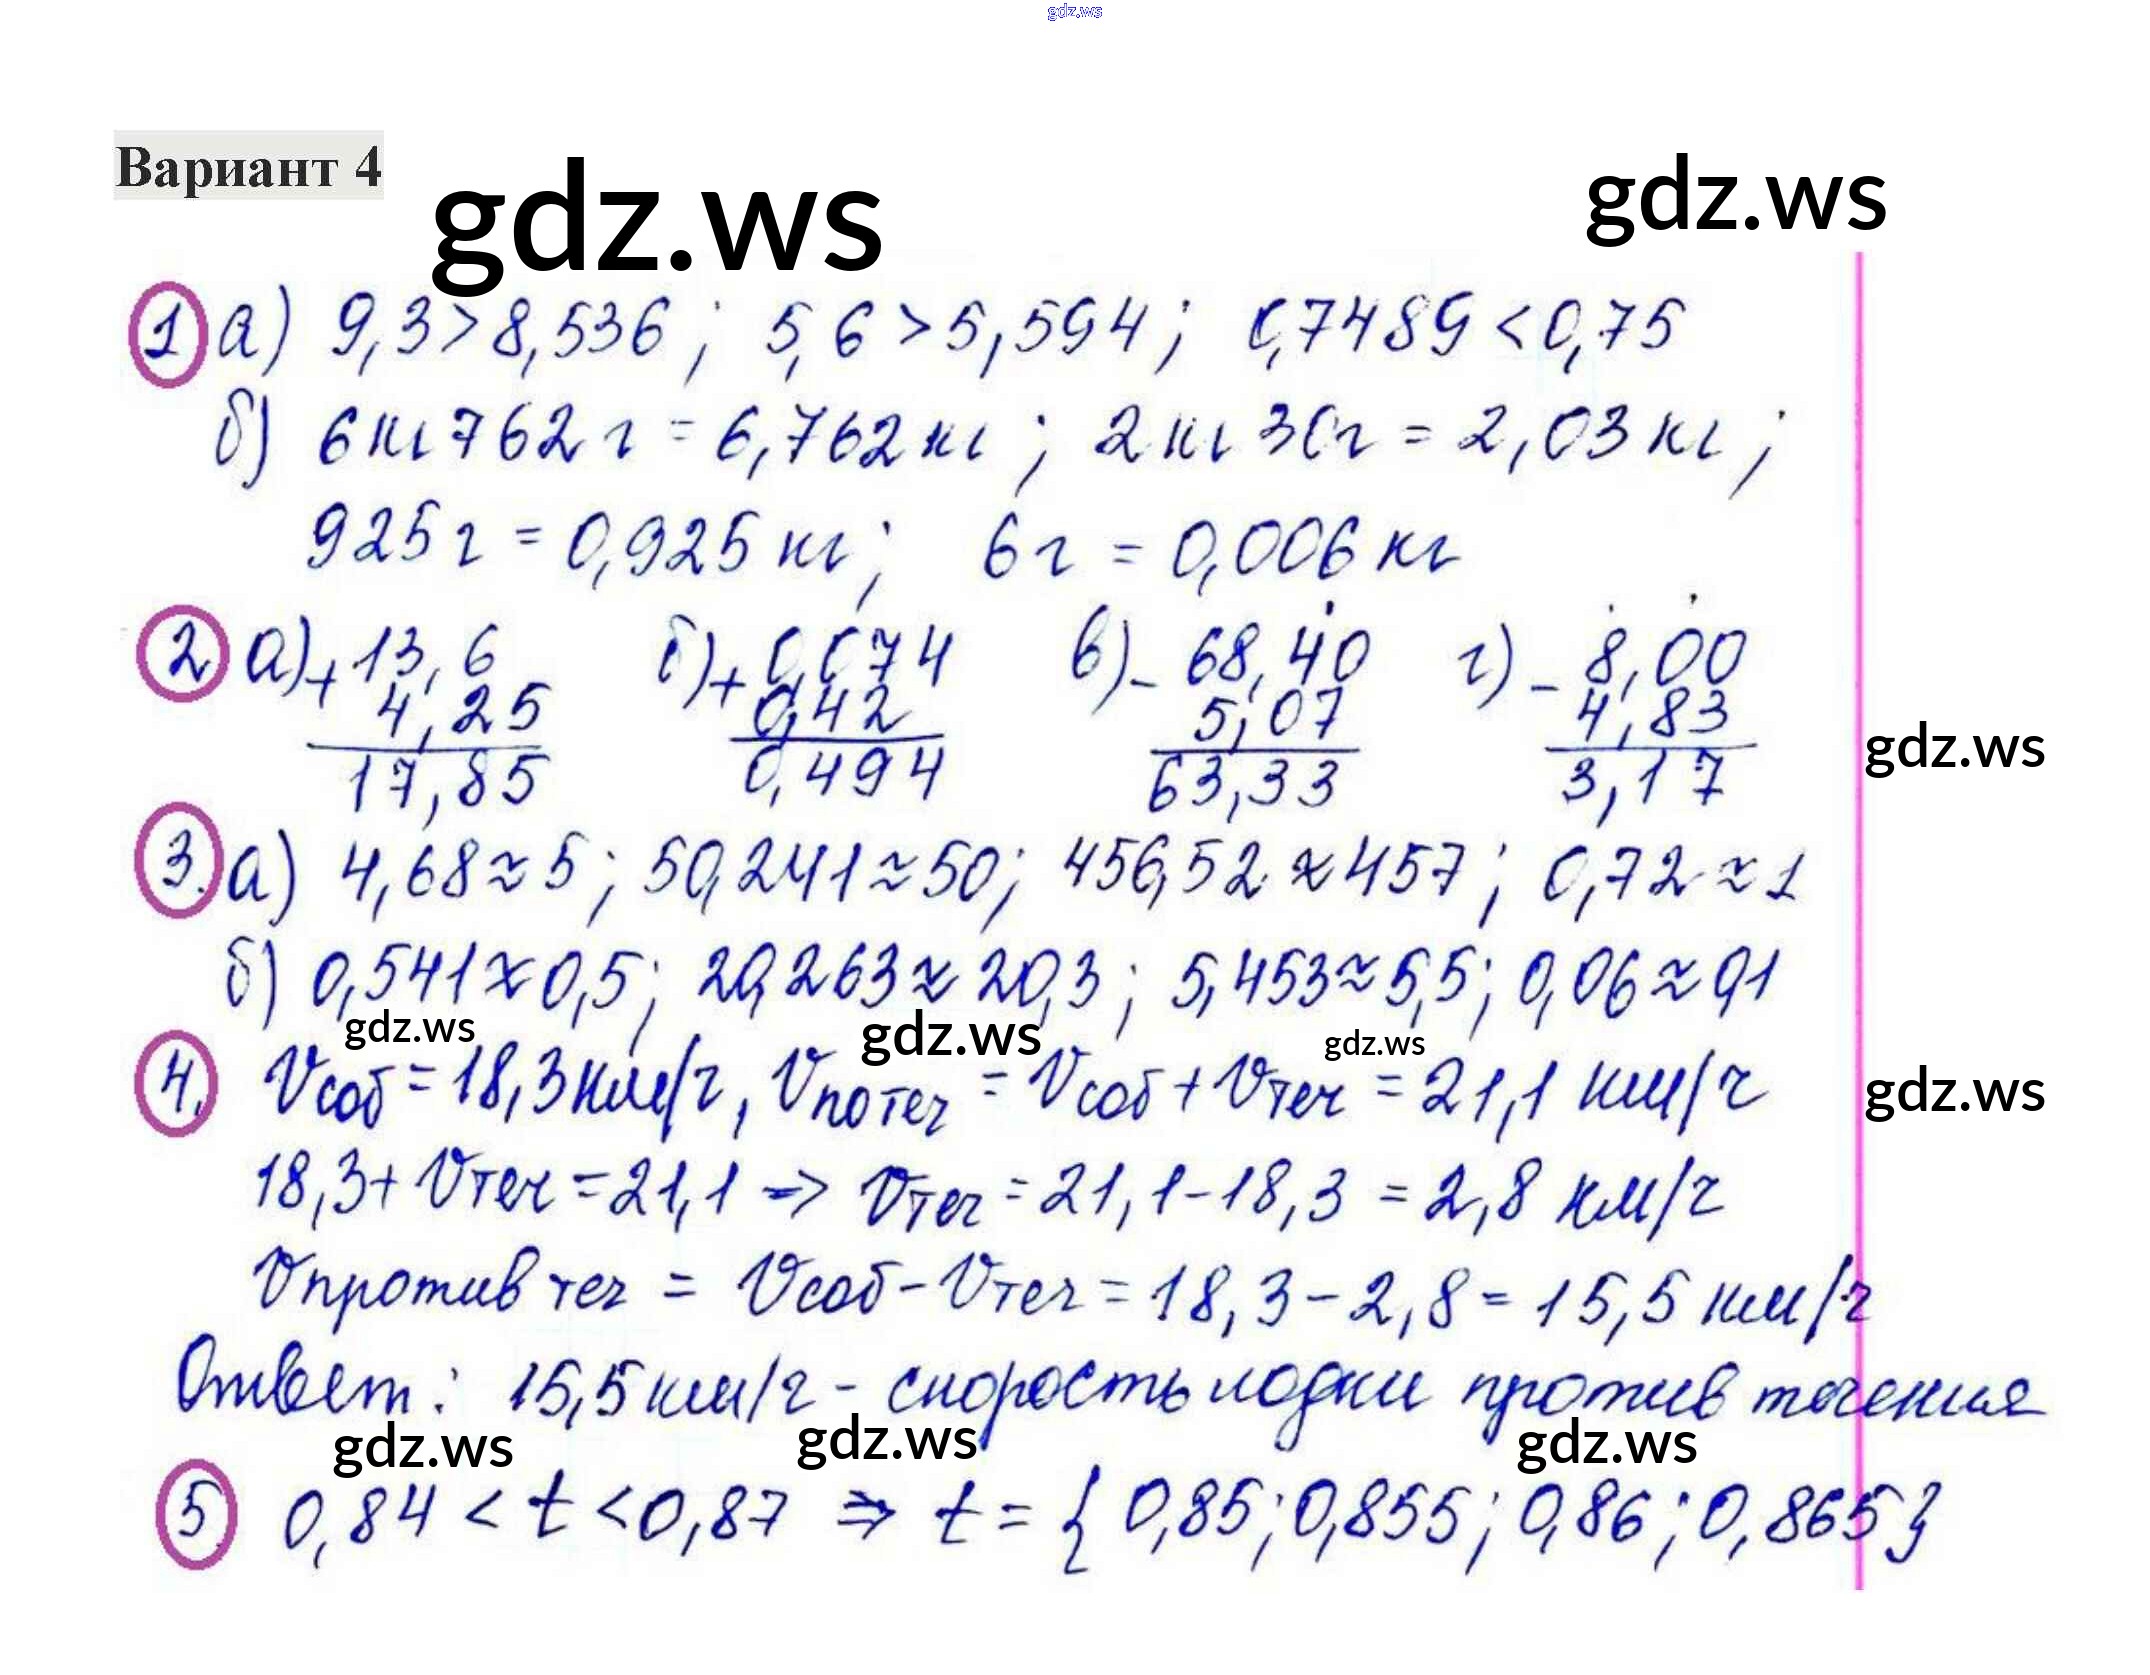 gdz.ws
Вариант 4
gdz.ws
gdz.ws
1 а) 9,3>8,536; 5,6>5,594; 0,7489<0,75
б) 6кг762г=6,762кг; 2кг30г=2,03кг;
925г=0,925кг; 6г=0,006кг
2 а) + 13,6 б) + 0,074 в) - 68,40 г) - 8,00
4,25 0,42 5,07 4,83
gdz.ws
17,85 0,494 63,33 3,17
3. а) 4,68≈5; 50,241≈50; 456,52≈457; 0,72≈1
б) 0,541≈0,5; 20,263≈20,3; 5,453≈5,5; 0,06≈0,1
gdz.ws gdz.ws gdz.ws
4. Vсоб=18,3км/ч, Vпотеч=Vсоб+Vтеч=21,1 км/ч
gdz.ws
18,3+Vтеч=21,1 => Vтеч=21,1-18,3=2,8 км/ч
Vпротив теч = Vсоб-Vтеч=18,3-2,8=15,5 км/ч
Ответ: 15,5км/ч - скорость лодки против течения
gdz.ws gdz.ws gdz.ws
5 0,84<t<0,87 => t={0,85;0,855;0,86;0,865}